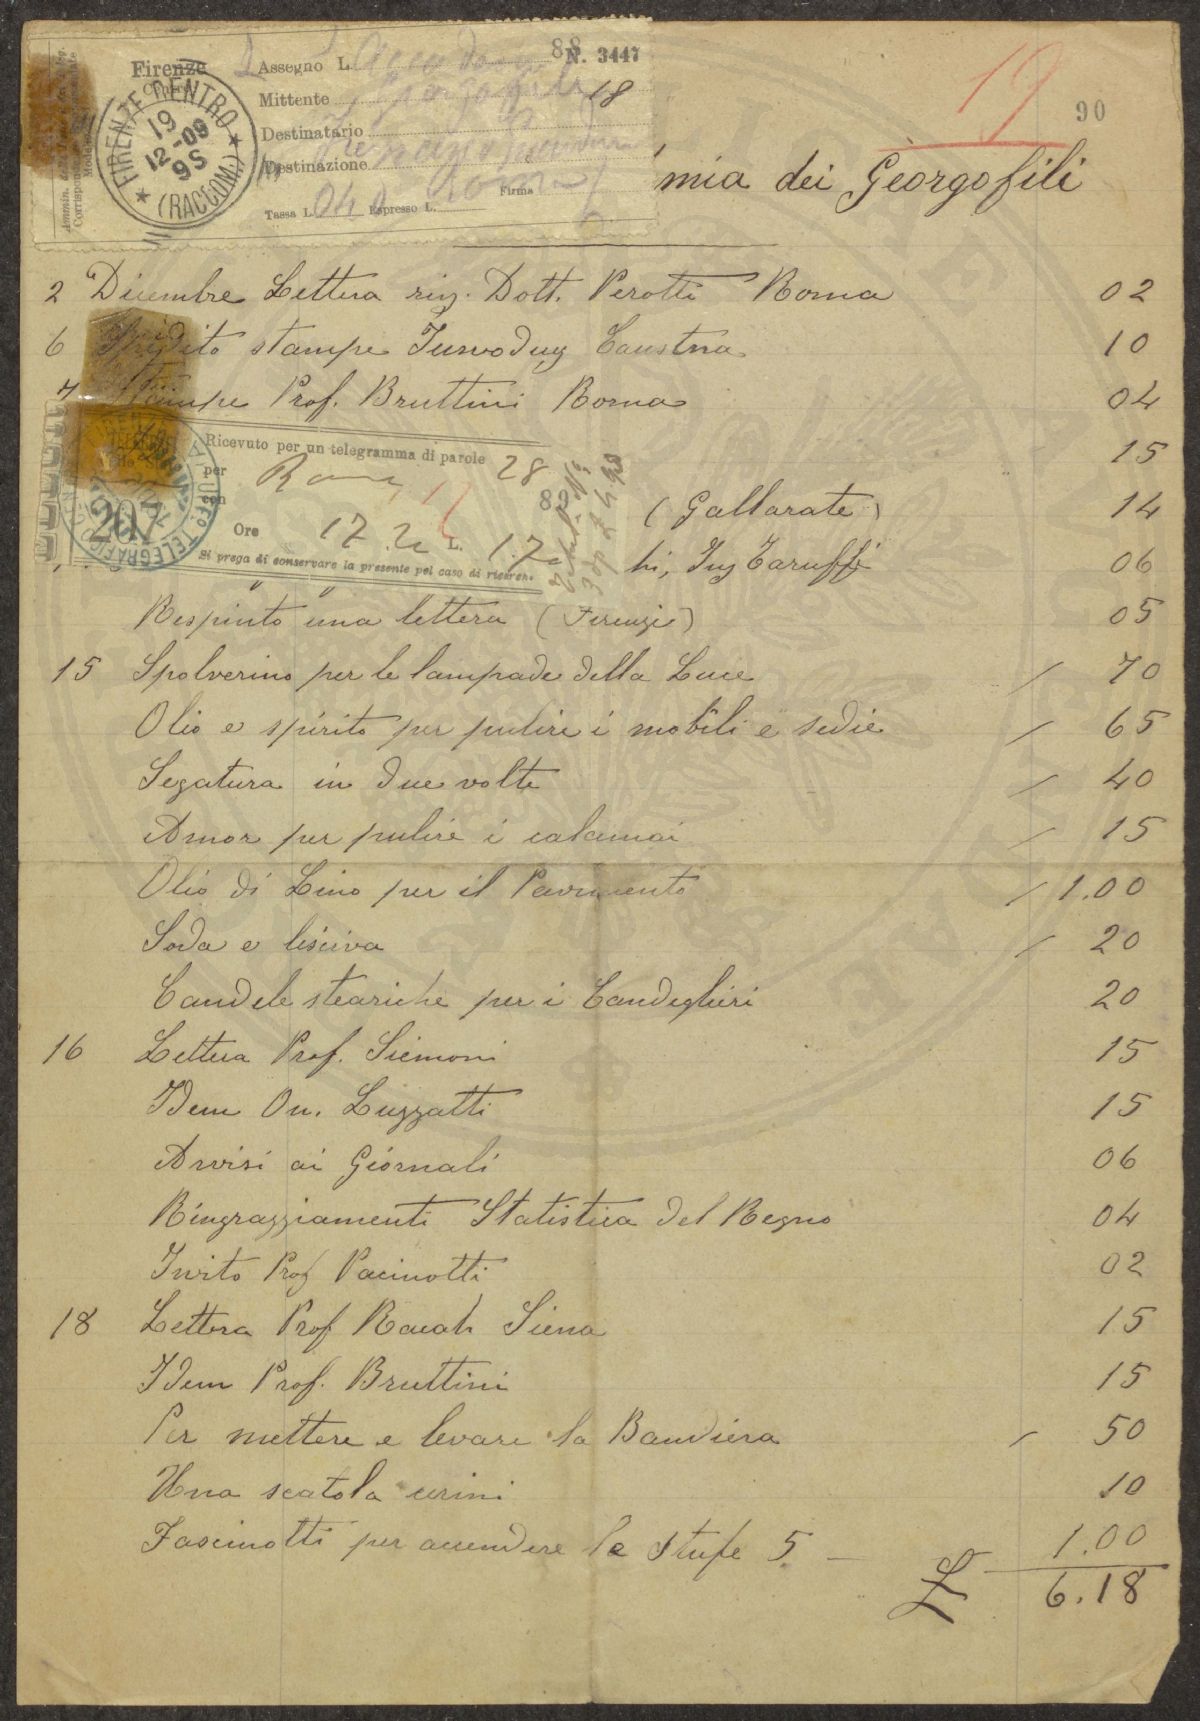 88
N. 3447
Firenze
Assegno L.
Mittente
18
Destinatario
Destinazione
Roma
Firma
Tassa L. 040 Espresso L.
FIRENZE DENTRO
19
12-09
9S
(RACCOM.)
19
90
mia dei Georgofili
2 Dicembre Lettera rig. Dott. Perotti Roma 02
6 Spedito stampe 10
7 Stampe Prof. Bruttini Roma 04
15
Ricevuto per un telegramma di parole 28
per Roma
con
89
Ore 17.20 L. 1.70
Si prega di conservare la presente pel caso di ricerche
UFF.o TELEGRAFICO
207
(Gallarate) 14
hi, Ing Taruffi 06
Respinto una lettera (Firenze) 05
15 Spolverino per le lampade della Luce / 70
Olio e spirito per pulire i mobili e sedie / 65
Segatura in due volte / 40
Amor per pulire i calamai / 15
Olio di Lino per il Pavimento / 1.00
Soda e lisciva / 20
Candele steariche per i Candeglieri 20
16 Lettera Prof. Siemoni 15
Idem On. Luzzatti 15
Avvisi ai Giornali 06
Ringraziamenti Statistica del Regno 04
Invito Prof Pacinotti 02
18 Lettera Prof Racah Siena 15
Idem Prof. Bruttini 15
Per mettere e levare la Bandiera / 50
Una scatola cerini 10
Fascinotti per accendere le stufe 5 — 1.00
£ 6.18